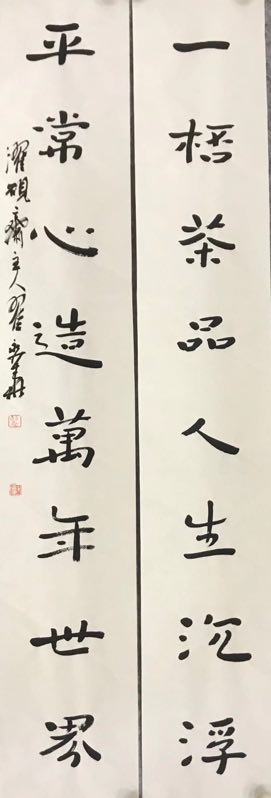 一桮茶品人生沉浮
平常心造萬年世界
濯硯齋主人